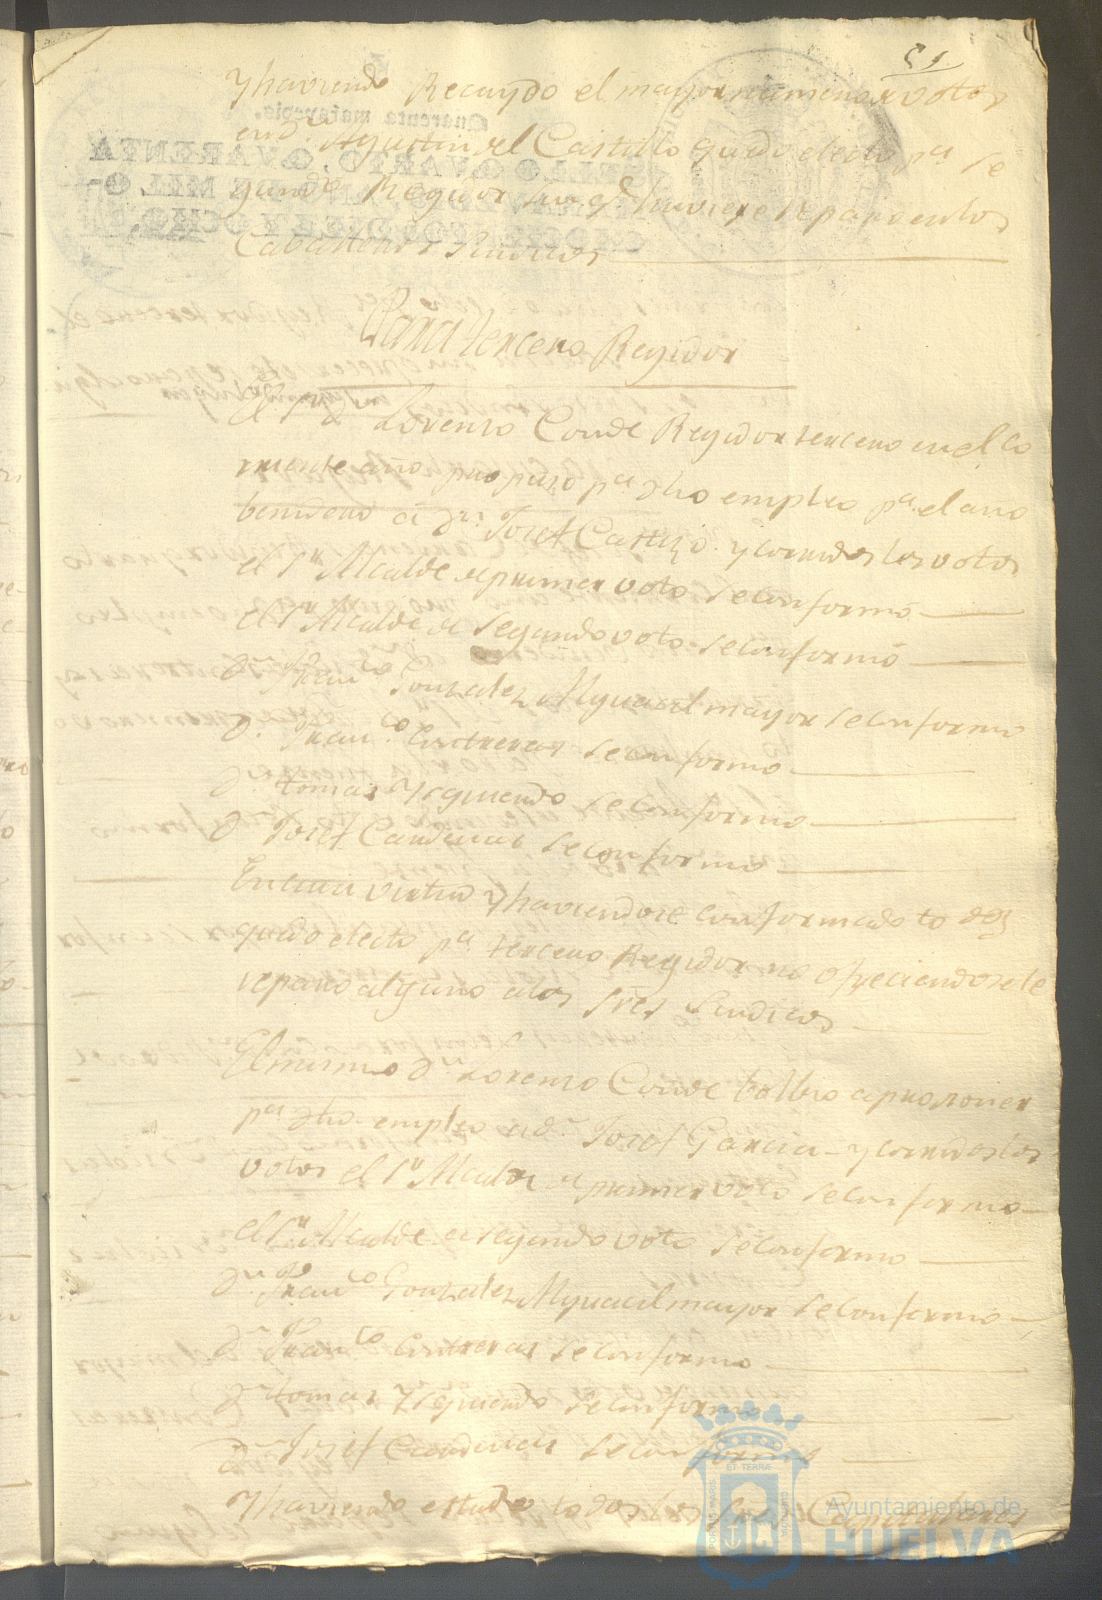 51
y haviendo Recaydo el mayor numero de votos
en Dn. Agustin del Castillo quedo electo pa. Se
gundo Regidor sin qe. huviere reparo en los
Cavalleros Sindicos
Para tercero Regidor
El Sr. Dn. Lorenzo Conde Regidor tercero en el co
rriente año propuso pa. dho empleo pa. el año
benidero a Dn. Josef Castizo y corridos los votos
el Sr. Alcalde de primer voto se conformo
el Sr. Alcalde de segundo voto se conformó
Dn. Franco. Gonzalez Alguacil mayor se conformo
Dn. Franco. Contreras se conformo
Dn. tomas Ysquierdo se conformo
Dn. Josef Cardenas se conformo
En cuia virtud y haviendose conformado todos
quedo electo pa. tercero Regidor no ofreciendosele
reparo alguno a los Sres Sindicos
El mismo Dn. Lorenzo Conde bolbio a proponer
pa. dho empleo a Dn. Josef Garcia y corridos los
votos el Sr. Alcalde de primer voto se conformo
el Sr. Alcalde de segundo voto se conformo
Dn. Franco. Gonzalez Alguacil mayor se conformo
Dn. Franco. Contreras se conformo
Dn. tomas Ysquierdo se conformo
Dn. Josef Cardenas se conformo
y haviendo estado todos los Sres Capitulares
Ayuntamiento de
HUELVA